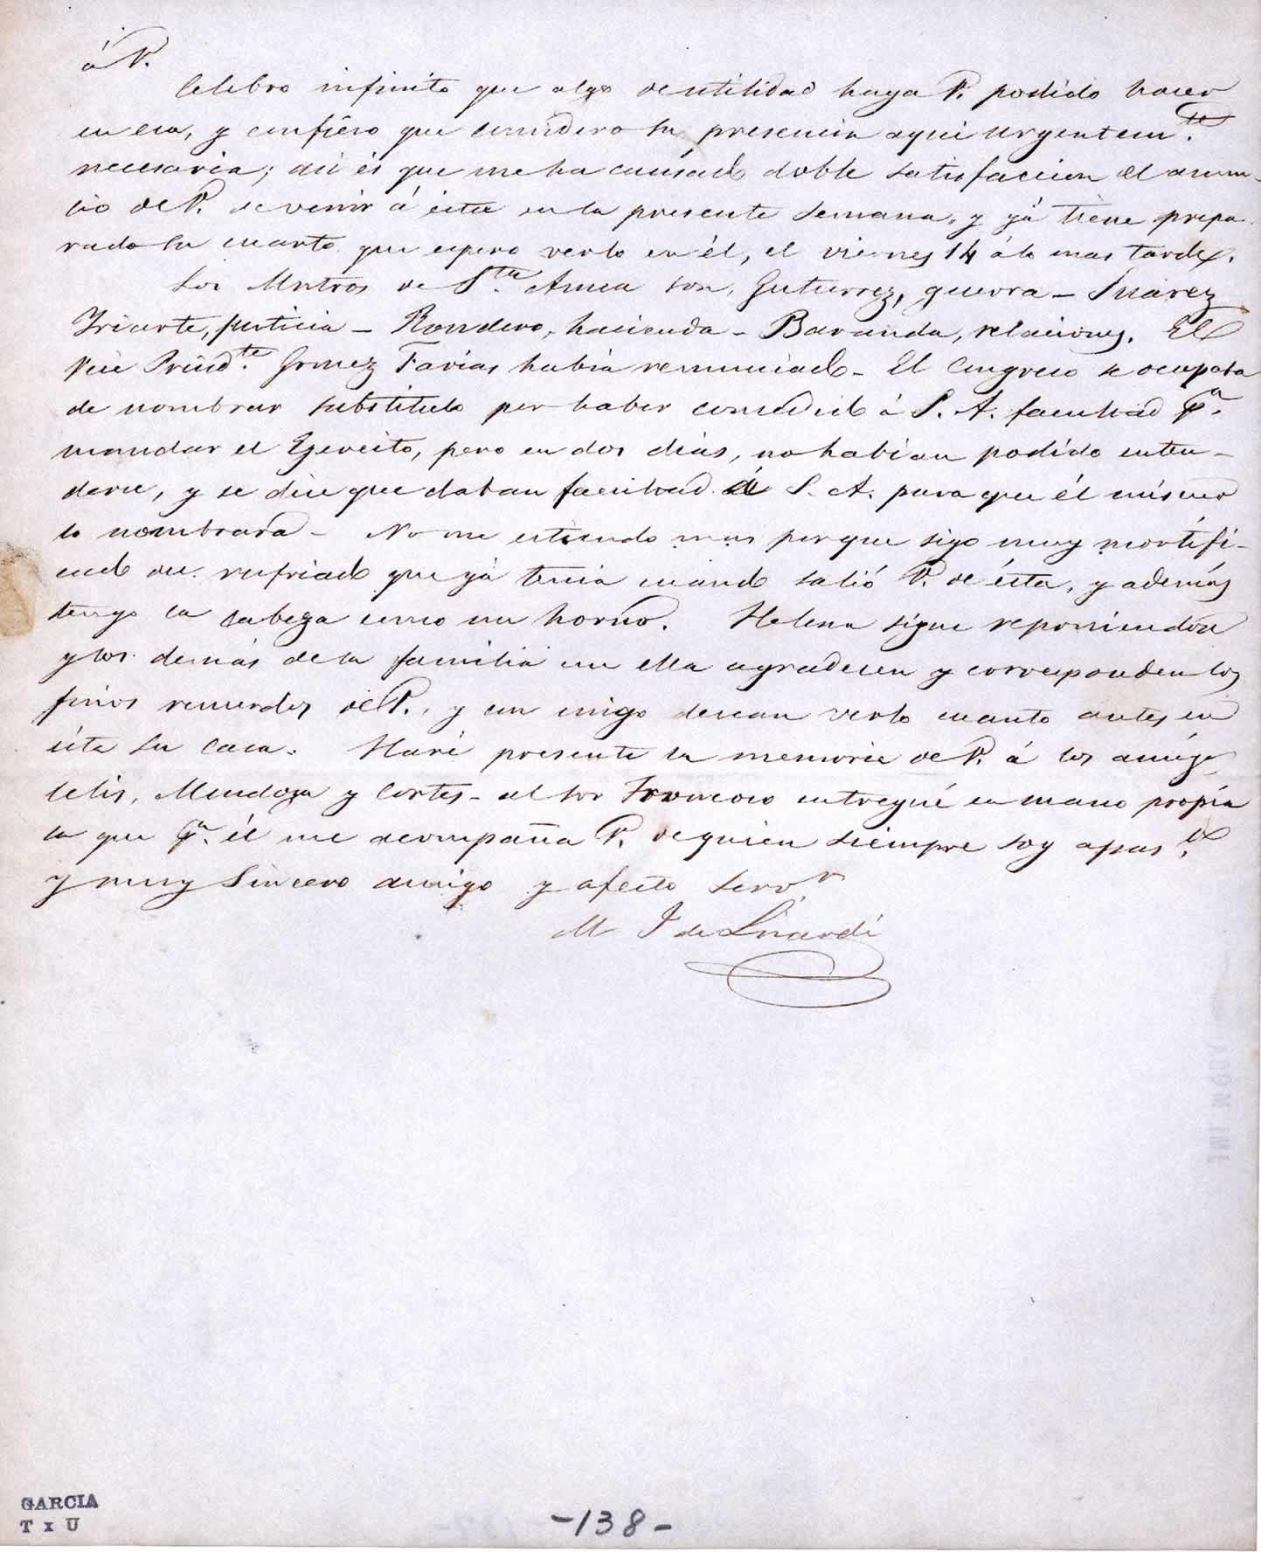 á V.
Celebro infinito que algo de utilidad haya V. podido hacer
en esa, y confieso que considero su presencia aqui urgentem.te
necesaria; asi es que me ha causado doble satisfaccion el anun-
cio de V. de venir á esta en la presente semana, y yá tiene prepa-
rado su cuarto que espero verlo en él, el viernes 14 á lo mas tarde.
Los Mntros de S.ta Anna son, Gutierrez, guerra - Suárez
Yriarte, justicia - Rondero, hacienda - Baranda, relaciones. El
Vice Presid.te Gomez Farias habia renunciado - El Congreso se ocupaba
de nombrar substituto por haber concedido á S. A. facultad p.a
mandar el Egercito, pero en dos dias, no habian podido enten-
derse, y se dice que daban facultad á S. A. para que él mismo
lo nombrara - No me estiendo mas porque sigo muy mortifi-
cado del resfriado que yá tenia cuando salió V. de ésta, y además
tengo la cabeza como un horno. Helena sigue reponiendose
y los demás de la familia con ella agradecen y corresponden los
finos recuerdos de V., y con migo desean verlo cuanto antes en
ésta su casa. Haré presente la memoria de V. á los amigs
Celis, Mendoza y Cortes - al Sor Francoso entregué en mano propia
la que p.a él me acompaña V. de quien siempre soy apas.do
y muy sincero amigo y afecto serv.r
M J de Lizardi
GARCIA
T x U
-138-